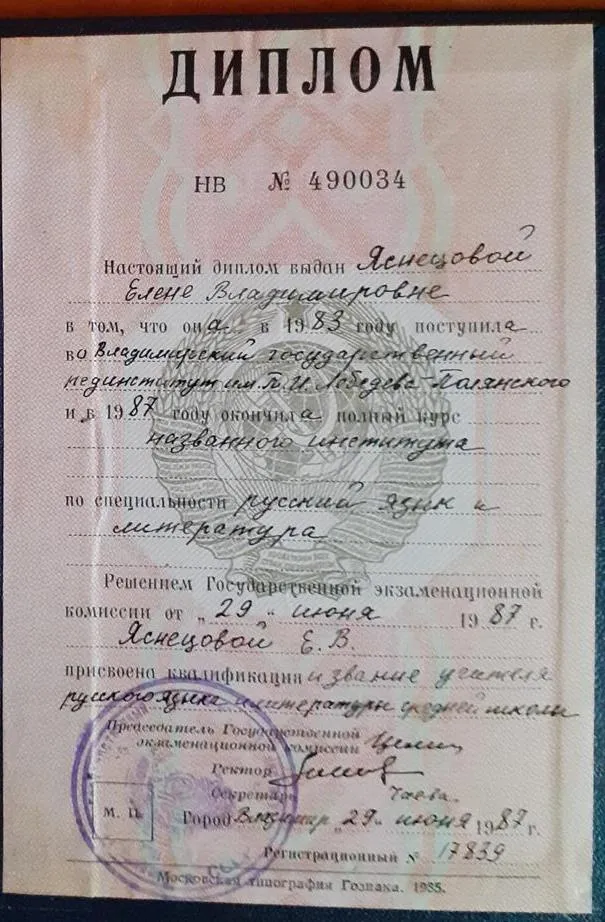 ДИПЛОМ
НВ № 490034
Настоящий диплом выдан Яснецовой
Елене Владимировне
в том, что она в 1983 году поступила
во Владимирский государственный
пединститут им. П.И. Лебедева-Полянского
и в 1987 году окончила полный курс
названного института
по специальности русский язык и
литература
Решением Государственной экзаменационной
комиссии от „29“ июня 1987 г.
Яснецовой Е. В.
присвоена квалификация и звание учителя
русского языка и литературы средней школы
Председатель Государственной
экзаменационной комиссии
Ректор
Секретарь
М. П.
Город Владимир „29“ июня 1987 г.
Регистрационный № 17839
Московская типография Гознака. 1985.